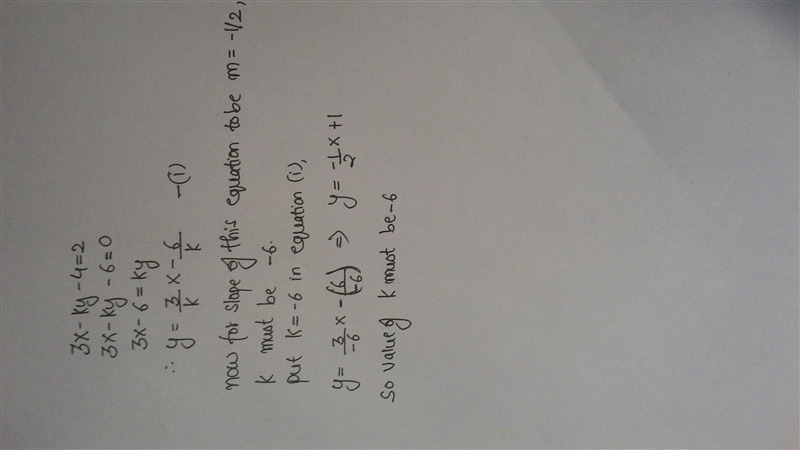 3x - ky - 4 = 2
3x - ky - 6 = 0
3x - 6 = ky
∴ y = 3/k x - 6/k -(i)
now for slope of this equation to be m = -1/2,
k must be -6.
put k = -6 in equation (i),
y = 3/-6 x - (6/-6) ⇒ y = -1/2 x + 1
so value of k must be -6